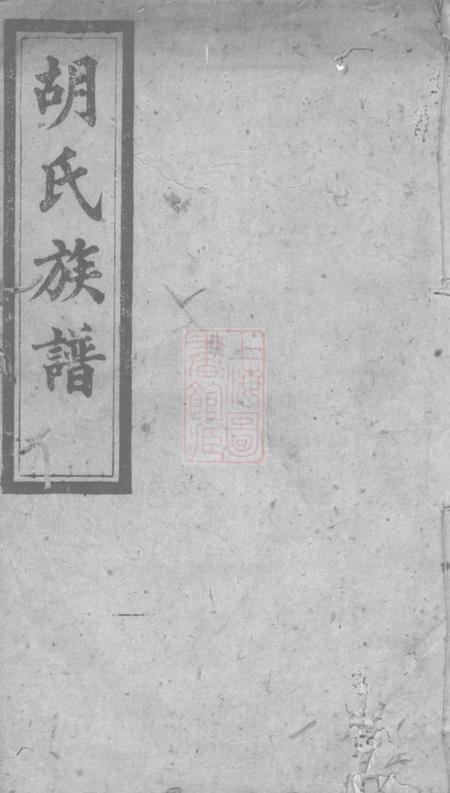 胡氏族譜
上海圖
書館藏